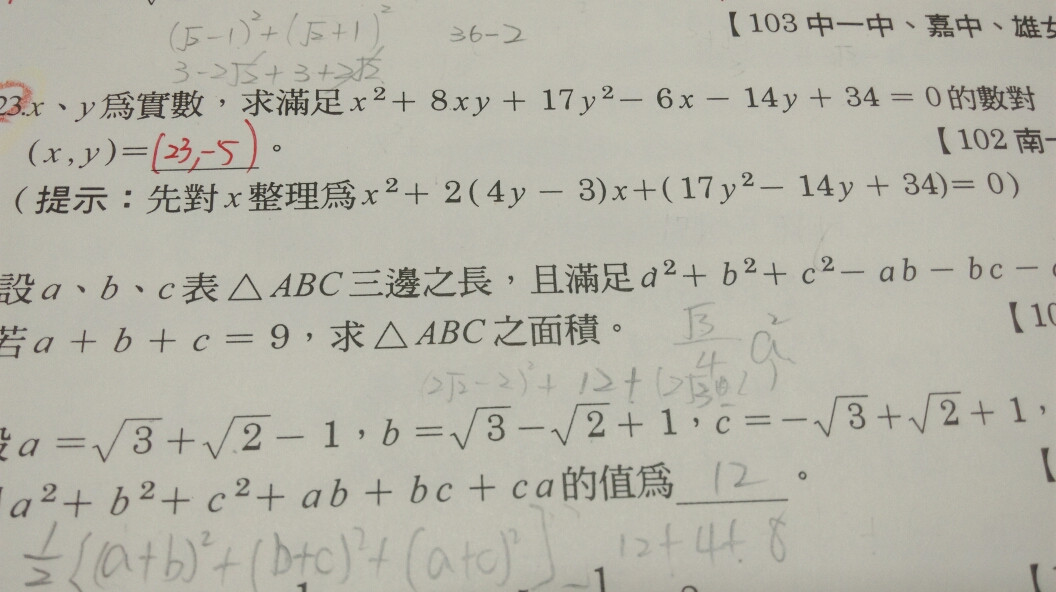 (√2-1)²+(√2+1)² 36-2
3-2√2+3+2√2
【103 中一中、嘉中、雄女
23.x、y為實數，求滿足x²+8xy+17y²-6x-14y+34=0的數對
(x,y)=(23,-5)。 【102 南一
(提示：先對x整理為x²+2(4y-3)x+(17y²-14y+34)=0)
設a、b、c表△ABC三邊之長，且滿足a²+b²+c²-ab-bc-
若a+b+c=9，求△ABC之面積。 √3/4 a² 【10
(2√2-2)²+12+
設a=√3+√2-1，b=√3-√2+1，c=-√3+√2+1，
a²+b²+c²+ab+bc+ca的值為 12 。 【
1/2{(a+b)²+(b+c)²+(a+c)²] 12+4+8